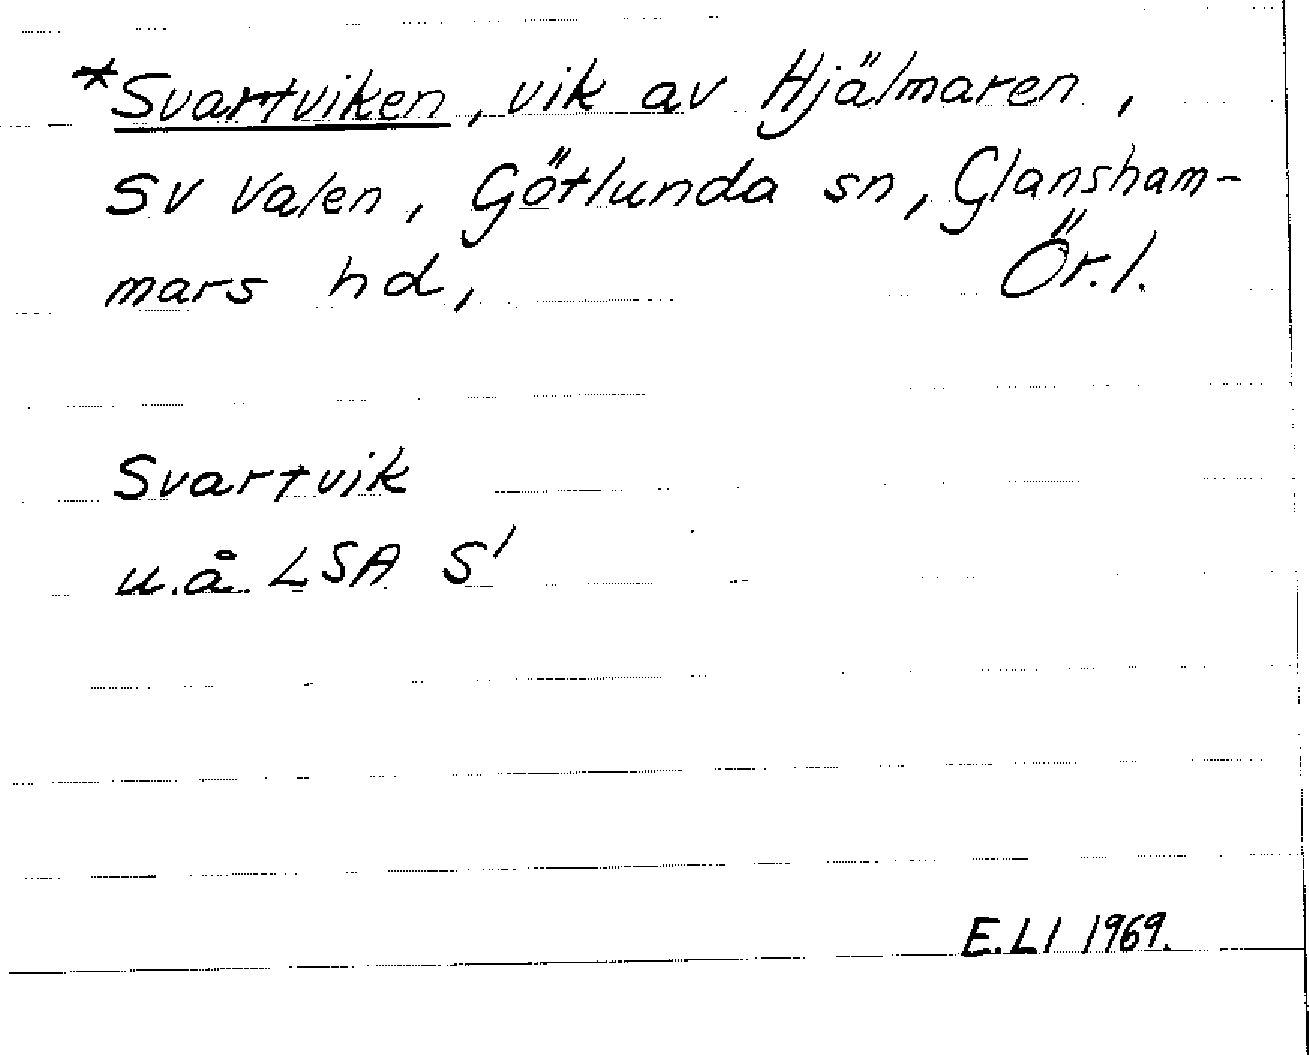 *Svartviken, vik av Hjälmaren,
SV Valen, Götlunda sn, Glansham-
mars hd, Ör. l.
Svartvik
u.å. LSA S'
E.LI 1969.